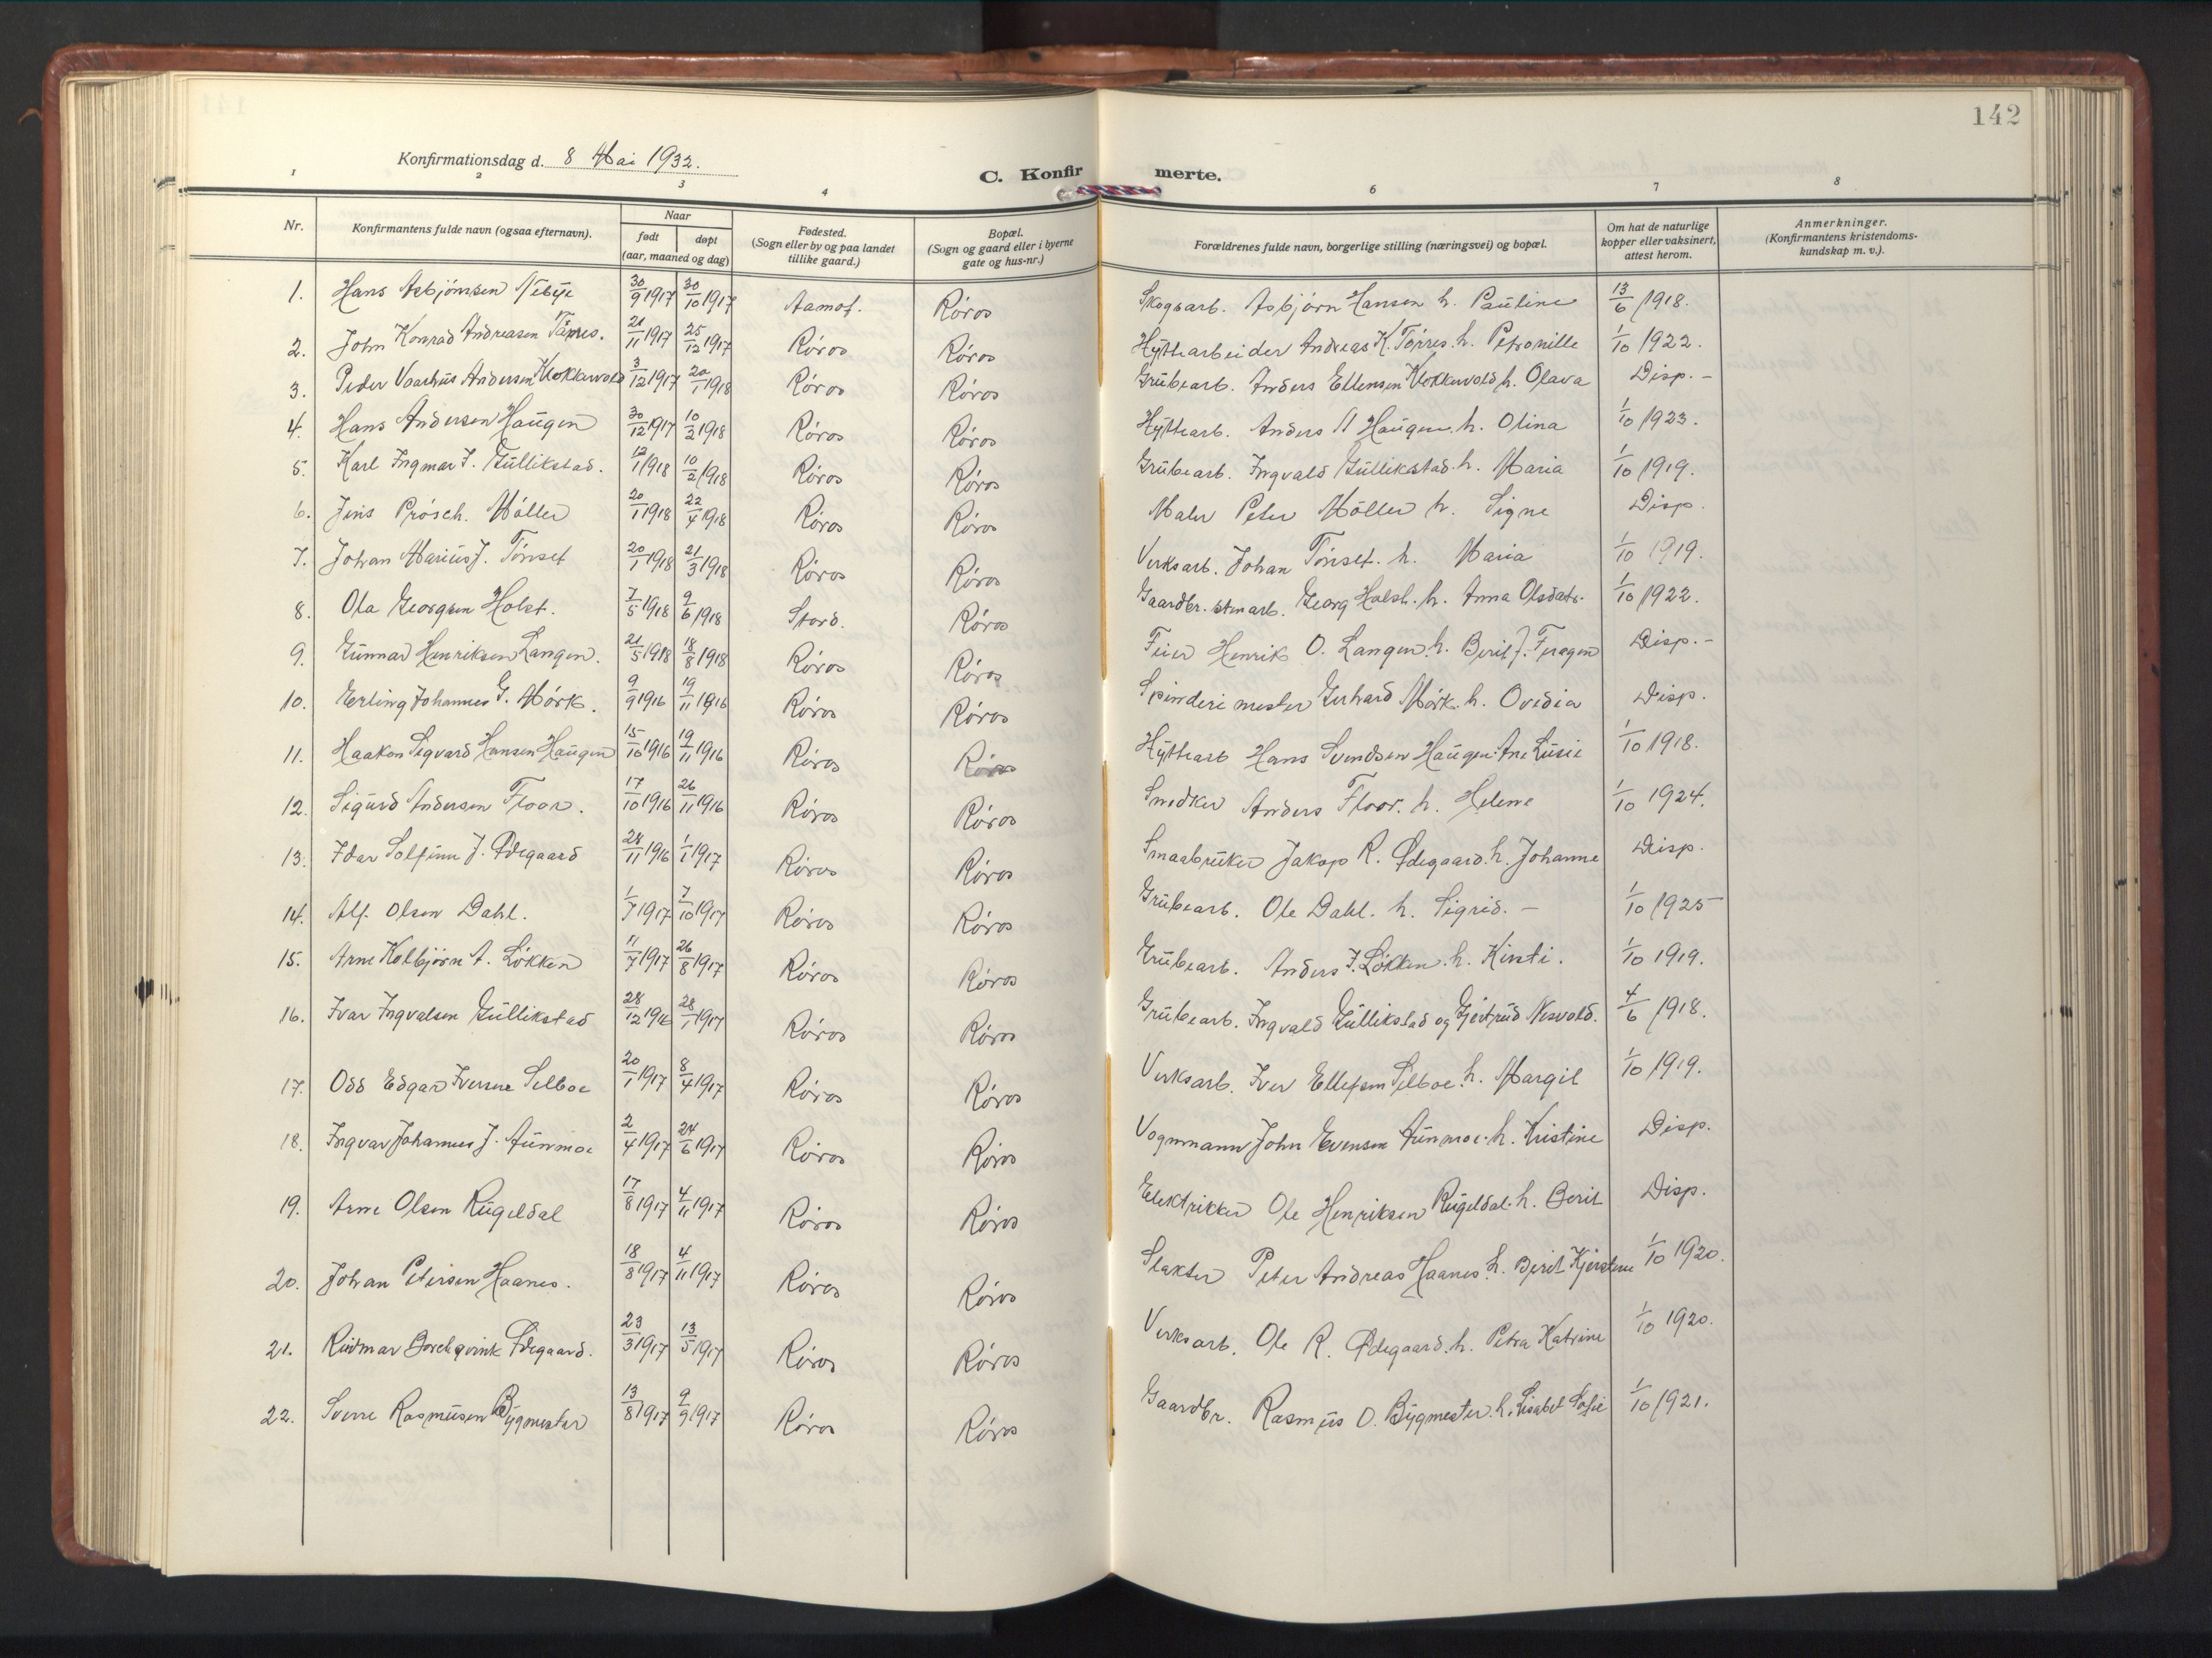 142
Konfirmationsdag d. 8 Mai 1932.
C. Konfir merte.
1 2 3 4 6 7 8
Nr. Konfirmantens fulde navn (ogsaa efternavn). Naar født døpt (aar, maaned og dag) Fødested. (Sogn eller by og paa landet tillike gaard.) Bopæl. (Sogn og gaard eller i byerne gate og hus-nr.) Forældrenes fulde navn, borgerlige stilling (næringsvei) og bopæl. Om hat de naturlige kopper eller vaksinert, attest herom. Anmerkninger. (Konfirmantens kristendomskundskap m. v.).
1. Hans Asbjörnsen 30/9 1917 30/10 1917 Aamot. Röros Skogsarb. Asbjörn Hansen h. Pauline 13/6 1918.
2. John Konrad Andreasen Törres. 21/11 1917 25/12 1917 Röros Röros Hyttearbeider Andreas K. Törres. h. Petronille 1/10 1922.
3. Peder Vaarhus Andersen Klokkervold 3/12 1917 20/1 1918 Röros Röros Grubearb. Anders Ellensen Klokkervold h. Olava Disp. -
4. Hans Andersen Haugen 30/12 1917 10/2 1918 Röros Röros Hyttearb. Anders Haugen. h. Olina 1/10 1923.
5. Karl Ingmar I. Gullikstad. 12/1 1918 10/2 1918 Röros Röros Grubearb. Ingvald Gullikstad. h. Maria 1/10 1919.
6. Jens Prösch. Möller 20/1 1918 22/4 1918 Röros Röros Maler Peter Möller h. Signe Disp.
7. Johan Marius J. Tönset 20/1 1918 21/3 1918 Röros Röros Verksarb. Johan Tönset. h. Maria 1/10 1919.
8. Ola Georgsen Holst. 7/5 1918 9/6 1918 Stord. Röros Gaardbr. stenarb. Georg Holst. h. Anna Olsdatr. 1/10 1922.
9. Gunnar Henriksen Langen. 21/5 1918 18/8 1918 Röros Röros Feier Henrik O. Langen. h. Berit J. Feragen Disp. -
10. Erling Johannes G. Mörk. 9/9 1916 19/11 1916 Röros Röros Spinderimester Gerhard Mörk. h. Ovidia Disp.
11. Haakon Sigvard Hansen Haugen 15/10 1916 19/11 1916 Röros Röros Hyttearb Hans Svendsen Haugen. Ane Lusie 1/10 1918.
12. Sigurd Andersen Floor. 17/10 1916 26/11 1916 Röros Röros Snedker Anders Floor. h. Helene 1/10 1924.
13. Idar Solfinn J. Ødegaard 24/11 1916 1/1 1917 Röros Röros Smaabruker Jakop R. Ødegaard. h. Johanne Disp.
14. Alf. Olsen Dahl. 1/7 1917 7/10 1917 Röros Röros Grubearb. Ole Dahl. h. Sigrid. - 1/10 1925
15. Arne Kolbjörn A. Lökken 11/7 1917 26/8 1917 Röros Röros Grubearb. Anders J. Lökken. h. Kirsti. 1/10 1919.
16. Ivar Ingvalsen Gullikstad 28/12 1916 28/1 1917 Röros Röros Grubearb. Ingvald Gullikstad og Gjertrud Nesvold. 4/6 1918.
17. Odd Edgar Iversen Selboe 20/1 1917 8/4 1917 Röros Röros Verksarb. Iver Ellefsen Selboe. h. Margit 1/10 1919.
18. Ingvar Johannes J. Aunmoe 2/4 1917 24/6 1917 Röros Röros Vognmann John Evensen Aunmoe. h. Kristine Disp.
19. Arne Olsen Rugeldal 17/8 1917 4/11 1917 Röros Röros Elektrikker Ole Henriksen Rugeldal. h. Berit Disp.
20. Johan Petersen Haanes. 18/8 1917 4/11 1917 Röros Röros Slakter Peter Andreas Haanes. h. Berit Kjerstine 1/10 1920.
21. Rudmar Borchgvink Ødegaard. 23/3 1917 13/5 1917 Röros Röros Verksarb. Ole R. Ødegaard. h. Petra Katrine 1/10 1920.
22. Sverre Rasmusen Bygmester 13/8 1917 9/9 1917 Röros Röros Gaardbr. Rasmus O. Bygmester. h. Lisabet Sofie 1/10 1921.